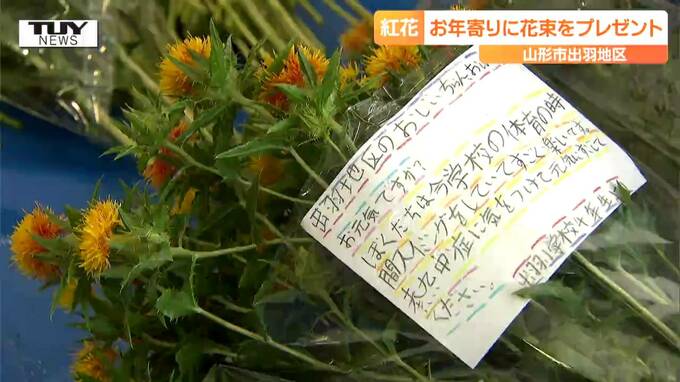 TUY
NEWS
紅花 お年寄りに花束をプレゼント
山形市出羽地区
出羽地区のおじいちゃん
お元気ですか?
ぼくたちは今学校の体育の時
間スイミングをしていてすごく楽しいです。
熱中症に気をつけて元気
ください。
出羽小学校